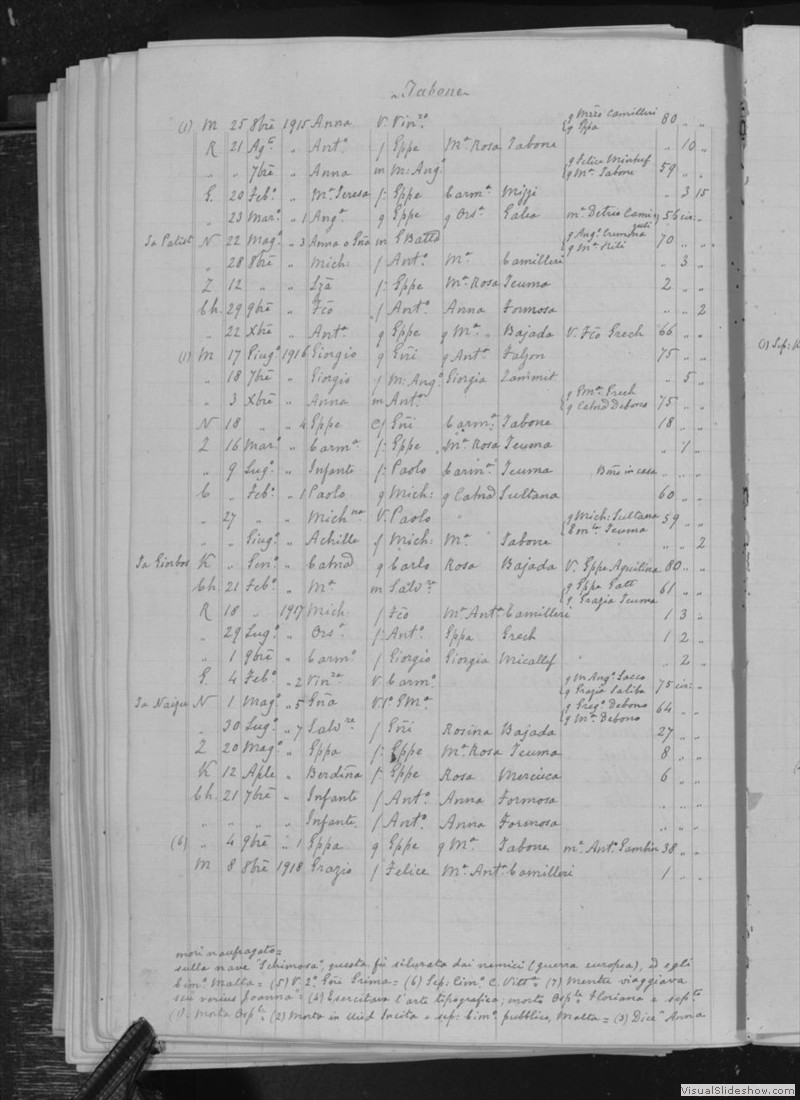 "Tabone"
(1) M 25 8bre 1915 Anna V. Vinza {q Miro Camilleri {q Eppa 80 " "
R 21 Ago " Anto f Eppe Ma Rosa Tabone " 10 "
" " 7bre " Anna m M: Ango {q Felice {q Ma Tabone 59 " "
G. 20 Febo " Ma Teresa f: Eppe Carma Mizzi " 3 15
" 23 Maro " 1 Anga q Eppe q Orsa Galea ma 56 cir: "
N 22 Mago " 3 Anna o m G Batta {q Ango {q Ma 70 " "
" 28 8bre " Mich: f Anto Ma Camilleri " 3 "
Z 12 " " f: Eppe Ma Rosa Teuma 2 " "
Ch. 29 9bre " Fco f Anto Anna Formosa " " 2
" 22 Xbre " Anto q Eppe q Ma " Bajada V. Fco Grech 66 " "
(1) M 17 Giugo 1916 Giorgio q Gni q Anta Falzon 75 " "
" 18 7bre " Giorgio f M: Ango Giorgia Zammit " 5 "
" 3 Xbre " Anna m Anto {q Grech {q Catnd Debono 75 " "
N 18 " " 4 Eppe f Gni Carma Tabone 18 " "
Z 16 Maro " Carma f: Eppe Ma Rosa Teuma " 1 "
" 9 Lugo " Infante f: Paolo Carma Teuma Bmo in casa " " "
C " Febo " 1 Paolo q Mich: q Catnd Sultana 60 " "
" 27 " " Michna V. Paolo " {q Mich: Sultana { Teuma 59 " "
" " Giugo " Achille f Mich: Ma Tabone " " 2
K " " Catnd q Carlo Rosa Bajada V. Eppe Aquilina 80 " "
Ch. 21 Febo " Ma m Salvre {q Eppe Gatt {q Grazia Teuma 61 " "
R 18 " 1917 Mich: f Fco Ma Anta Camilleri 1 3 "
" 29 Lugo " Orsa f: Anto Eppa Grech 1 2 "
" 1 9bre " Carmo f Giorgio Giorgia Micallef " 2 "
G. 4 Febo " 2 Vinza V. Carmo {q M Ango Sacco {q Grazia Saliba 75 cir: "
N 1 Mago " 5 Gna V. 1o {q Grego Debono {q Ma Debono 64 " "
" 30 Lugo " 7 Salvre f Gni Rosina Bajada 27 " "
Z 20 Mago " Eppa f: Eppe Ma Rosa Teuma 8 " "
K 12 Aple " f: Eppe Rosa Mercieca 6 " "
Ch. 21 7bre " Infante f Anto Anna Formosa " " "
" " " " Infante f Anto Anna Formosa " " "
(6) " 4 9bre " 1 Eppa q Eppe q Ma Tabone ma Anto Gambin 38 " "
M 8 8bre 1918 Grazio f Felice Ma Anta Camilleri 1 " "
morì naufragato =
sulla nave questa fù silurata dai nemici (guerra europea), ed egli
Cimo Malta = (5) V. 2o Gni Grima = (6) Sep: Cimo C. Vitta = (7) Mentre viaggiava
seu verius Joanna = (4) Esercitava l'arte tipografica; morto Osple Floriana e septo
(1) Morta Osple (2) Morta in e sep: Cimo pubblico, Malta = (3) Dice Anna
VisualSlideshow.com